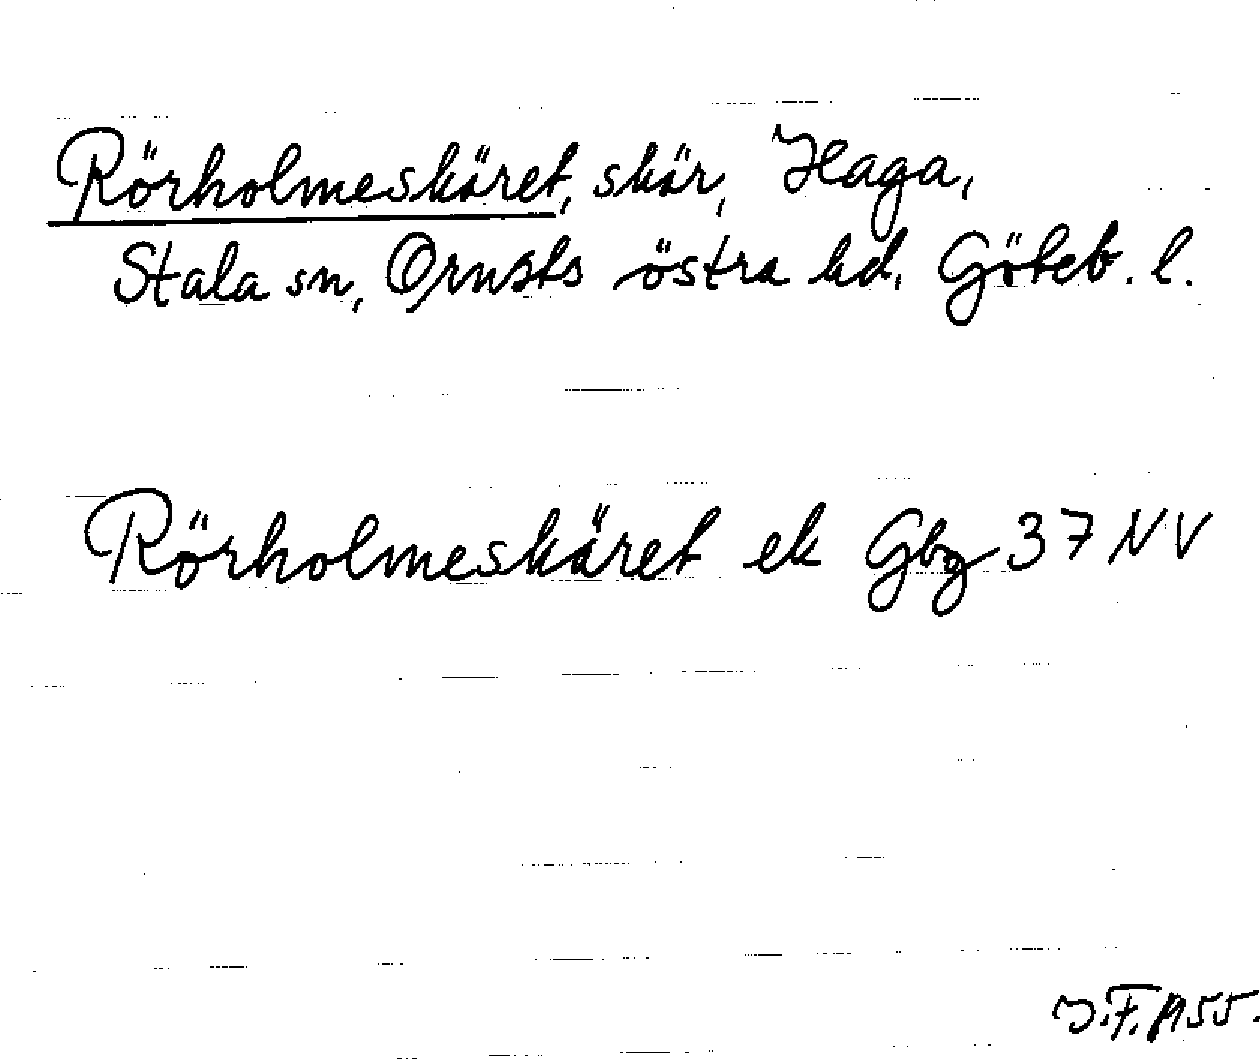 Rörholmeskäret, skär, Haga,
Stala sn, Ornsts östra hd. Göteb. l.
Rörholmeskäret ek Gbg 37 NV
J.F. 1955.